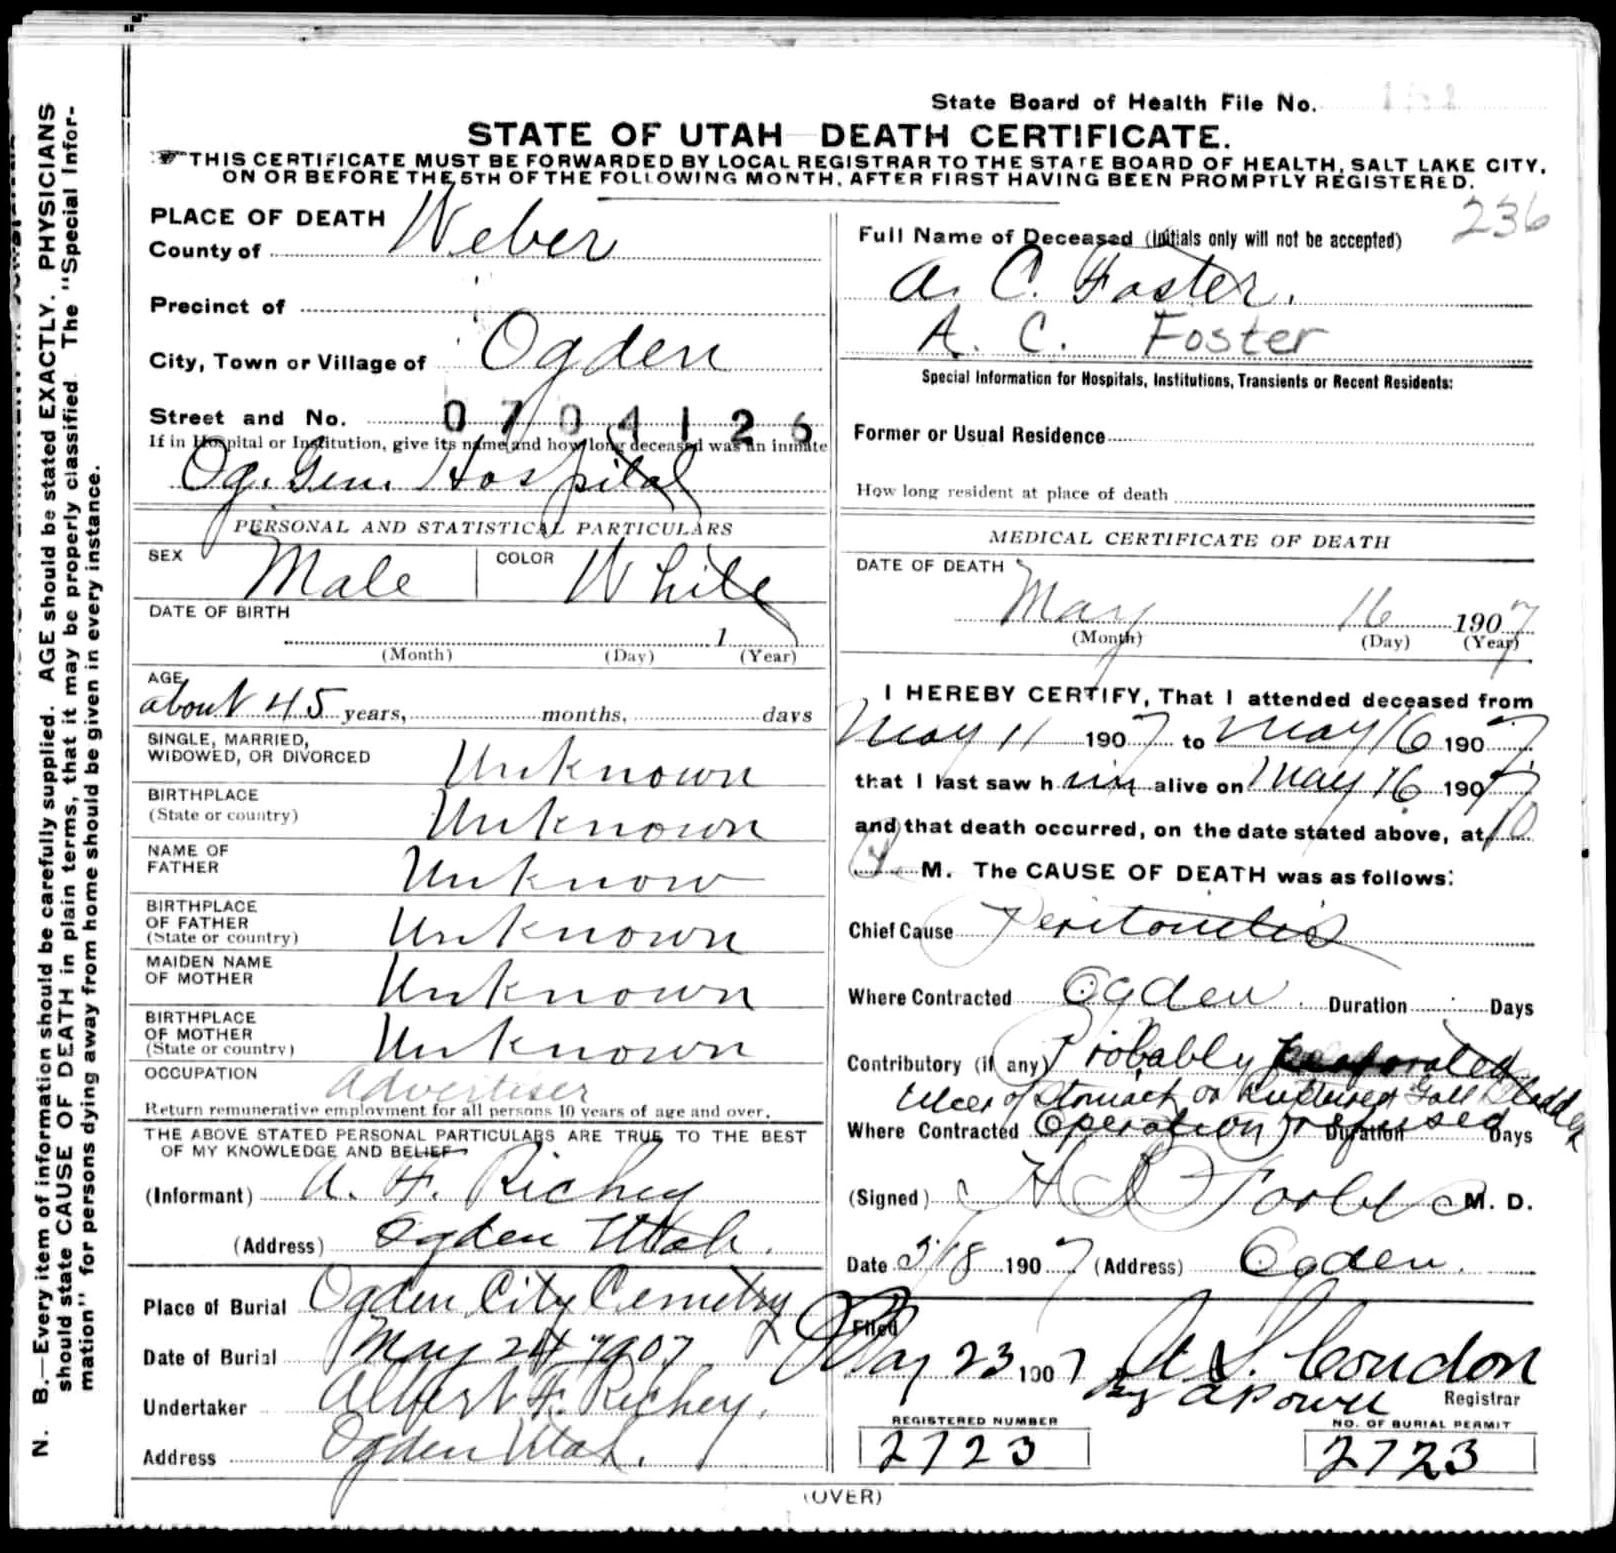 State Board of Health File No.
STATE OF UTAH DEATH CERTIFICATE.
THIS CERTIFICATE MUST BE FORWARDED BY LOCAL REGISTRAR TO THE STATE BOARD OF HEALTH, SALT LAKE CITY,
ON OR BEFORE THE 5TH OF THE FOLLOWING MONTH, AFTER FIRST HAVING BEEN PROMPTLY REGISTERED.
N. B.—Every item of information should be carefully supplied. AGE should be stated EXACTLY. PHYSICIANS
should state CAUSE OF DEATH in plain terms, that it may be properly classified. The "Special Infor-
mation" for persons dying away from home should be given in every instance.
PLACE OF DEATH
County of Weber
Precinct of
City, Town or Village of Ogden
Street and No. 0704126
If in Hospital or Institution, give its name and how long deceased was an inmate
Og. Gen. Hospital
PERSONAL AND STATISTICAL PARTICULARS
SEX Male COLOR White
DATE OF BIRTH
1
(Month) (Day) (Year)
AGE
about 45 years, months, days
SINGLE, MARRIED,
WIDOWED, OR DIVORCED Unknown
BIRTHPLACE
(State or country) Unknown
NAME OF
FATHER Unknow
BIRTHPLACE
OF FATHER
(State or country) Unknown
MAIDEN NAME
OF MOTHER Unknown
BIRTHPLACE
OF MOTHER
(State or country) Unknown
OCCUPATION Advertiser
Return remunerative employment for all persons 10 years of age and over.
THE ABOVE STATED PERSONAL PARTICULARS ARE TRUE TO THE BEST
OF MY KNOWLEDGE AND BELIEF
(Informant) A. F. Richey
(Address) Ogden Utah.
Place of Burial Ogden City Cemetry
Date of Burial May 24 1907
Undertaker Albert F. Richey.
Address Ogden Utah.
236
Full Name of Deceased (initials only will not be accepted)
A. C. Foster.
A. C. Foster
Special Information for Hospitals, Institutions, Transients or Recent Residents:
Former or Usual Residence
How long resident at place of death
MEDICAL CERTIFICATE OF DEATH
DATE OF DEATH
May 16 1907
(Month) (Day) (Year)
I HEREBY CERTIFY, That I attended deceased from
May 11 1907 to May 16 1907
that I last saw him alive on May 16 1907
and that death occurred, on the date stated above, at 10
M. The CAUSE OF DEATH was as follows:
Chief Cause Peritonitis
Where Contracted Ogden. Duration Days
Contributory (if any) Probably Perforated
Ulcer of Stomach or Ruptured Gall Bladder
Where Contracted Operation refused Duration Days
(Signed) M. D.
Date 5/18 1907 (Address) Ogden.
Filed
May 23 1907 Condon
By Registrar
REGISTERED NUMBER
2723
NO. OF BURIAL PERMIT
2723
(OVER)